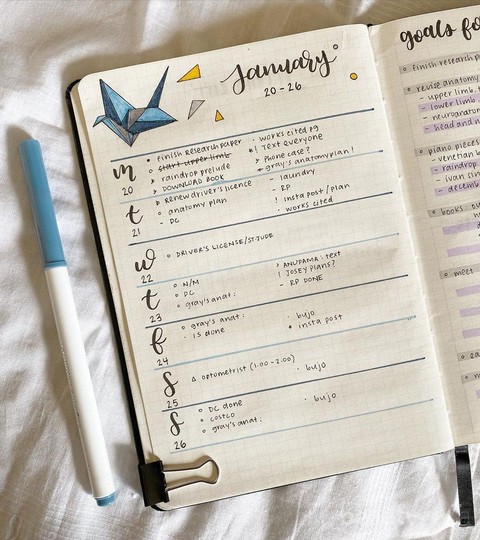 January
20-26
m
20
finish research paper
start upper limb
raindrop prelude
DOWNLOAD BOOK
works cited pg
! Text everyone
phone case?
gray's anatomy plan!
t
21
renew driver's licence
anatomy plan
DC
laundry
RP
! insta post/plan
works cited
w
22
DRIVER'S LICENSE/ST.JUDE
t
23
N/M
DC
gray's anat:
ANUPAMA: text
! JOSEY plans?
- RP DONE
f
24
gray's anat:
is done
bujo
insta post
s
25
optometrist (1:00-2:00)
bujo
s
26
DC done
costco
gray's anat:
bujo
goals fo
finish research p
revise anatomy
- upper limb, t
- lower limb
- neuroanato
- head and n
piano pieces
- venetian b
- raindrop
- ivan sin
- decemb
books
meet